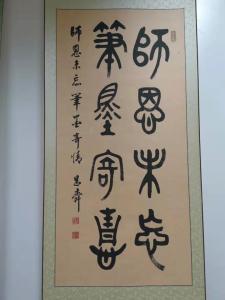 師恩未忘
筆墨寄情
師恩未忘筆墨寄情